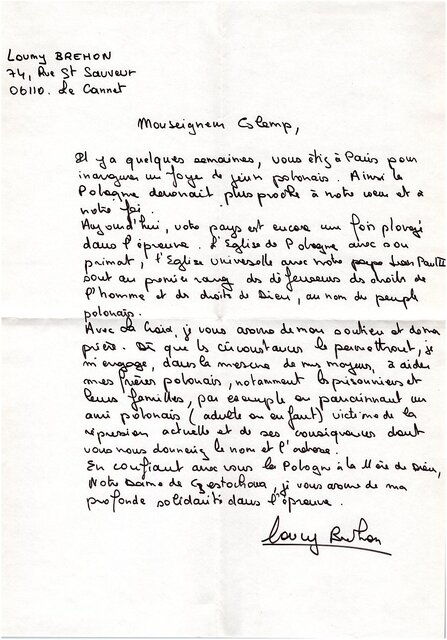 Loumy BREHON
74, Rue St Sauveur
06110. Le Cannet
Monseigneur Glemp,
Il y a quelques semaines, vous étiez à Paris pour
inaugurer un foyer de jeunes polonais. Ainsi la
Pologne devenait plus proche à notre cœur et à
notre foi.
Aujourd'hui, votre pays est encore une fois plongé
dans l'épreuve. L'Eglise de Pologne avec son
primat, l'Eglise universelle avec notre pape Jean Paul II
sont au premier rang des défenseurs des droits de
l'homme et des droits de Dieu, au nom du peuple
polonais.
Avec La Croix, je vous assure de mon soutien et de ma
prière. Dès que les circonstances le permettront, je
m'engage, dans la mesure de mes moyens, à aider
mes frères polonais, notamment les prisonniers et
leurs familles, par exemple en parrainant un
ami polonais (adulte ou enfant) victime de la
répression actuelle et de ses conséquences dont
vous nous donnerez le nom et l'adresse.
En confiant avec vous la Pologne à la Mère de Dieu,
Notre Dame de Czestochowa, je vous assure de ma
profonde solidarité dans l'épreuve.
Loumy Brehon